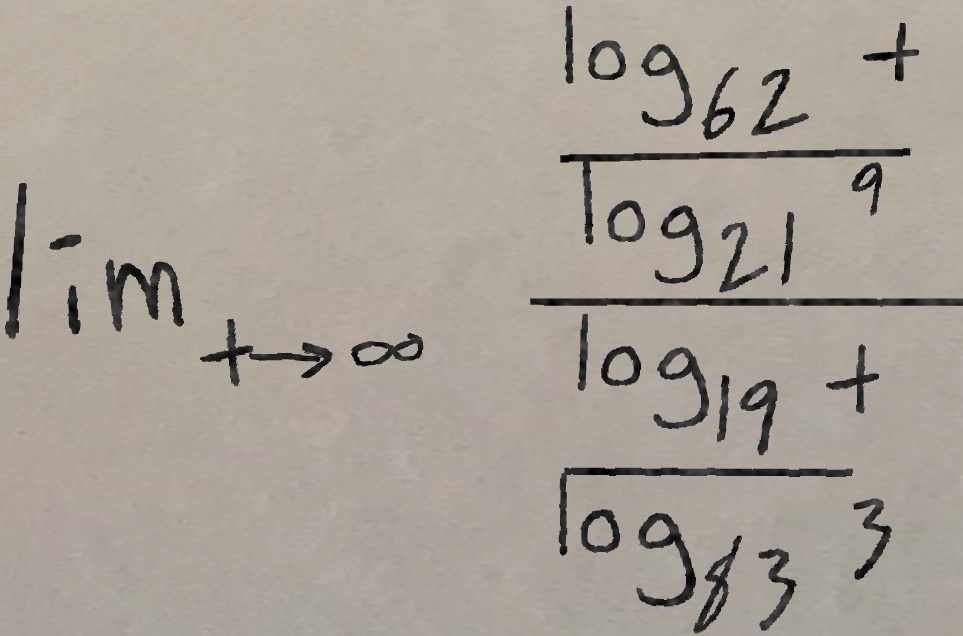 \lim_{t \to \infty} \frac{\frac{\log_{62} t}{\log_{21} 9}}{\frac{\log_{19} t}{\log_{83} 3}}